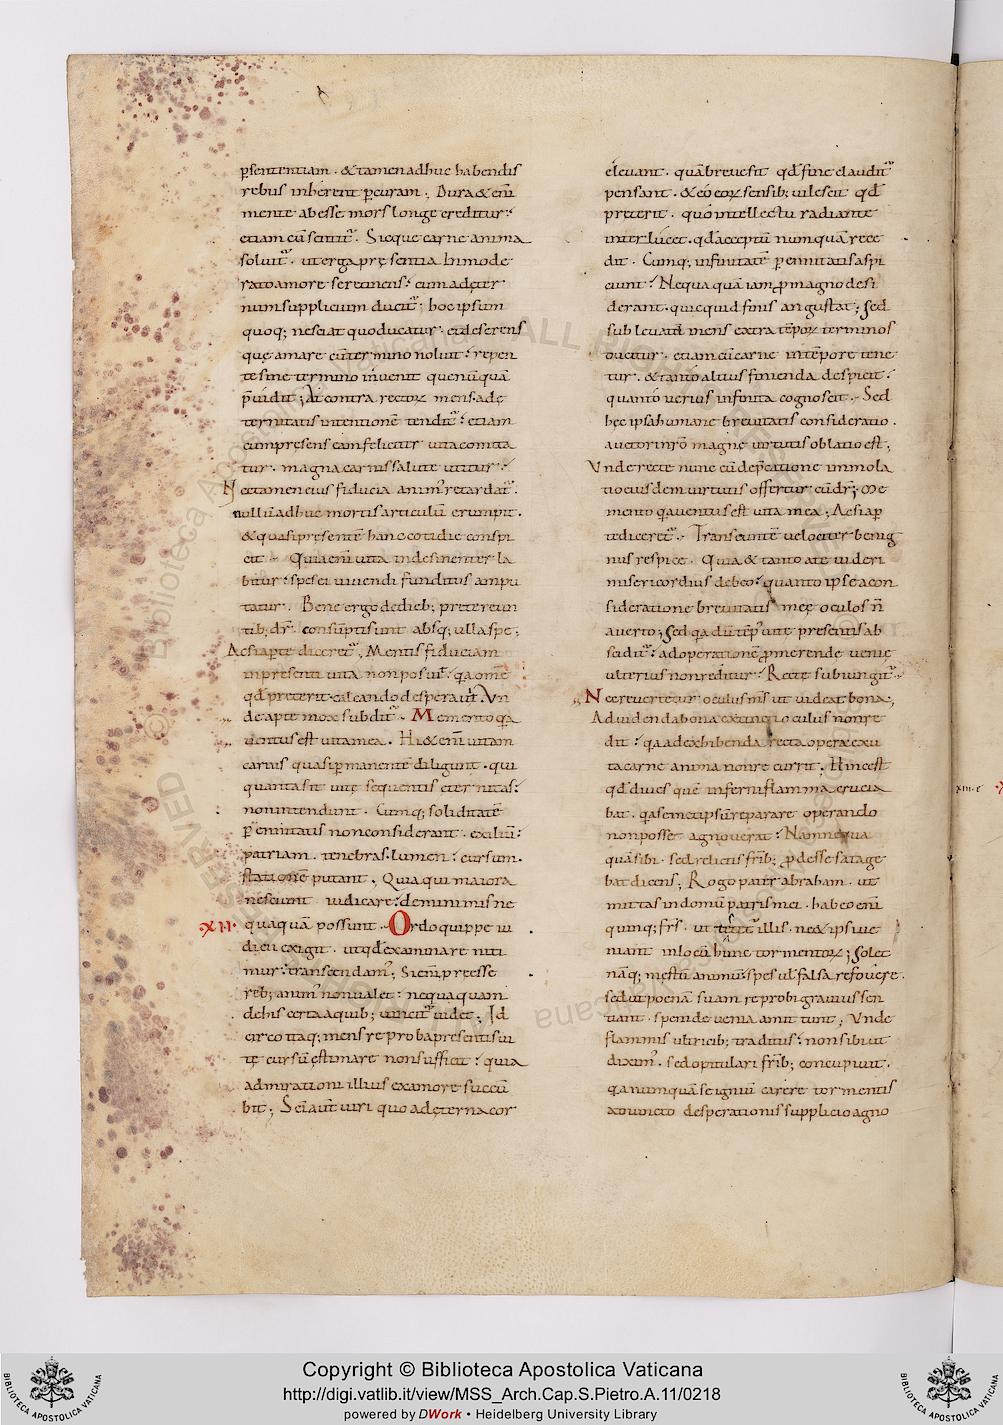 psententiam . & tamen adhuc habendis
rebus inherent p curam . Dura & eni
mente abesse mors longe creditur .
etiam cu sentit . Sicque carne anima
soluit . ut erga presentia inmode
rato amore se retinens . cum adeter
num supplicium ducit ; hoc ipsum
quoq; nesciat quo ducatur . et deserens
que amare cu termino noluit . repen
te sine termino invenit que nunqua
pvidit ; At contra rector mens ad e
ternitatis intentione tendit . etiam
cum presens ean feliciter vita comita
tur . magna carnis salute utitur .
Nec tamen eius fiducia anim retardat .
nullu adhuc mortis articulu erumpit .
& quasi presente hanc cotidie conspi
cit . Quia eni vita indesinenter la
bitur . spes ei vivendi funditus ampu
tatur . Bene ergo de dieb; pretereun
tib; dr . consupti sunt absq; ulla spe ;
Ac si aperte diceret ; Mentis fiduciam
in presenti vita non posui . qa ome
qd preterit . calcando desperavi . Un
de apte mox subdit . Memento qa
ventus est vita mea . Hi & eni vitam
carnis quasi pmanente diligunt . qui
quanta sit vite sequentis eternitas .
non intendunt . Cumq; soliditate
pennitatis non considerant . exiliu .
patriam . tenebras . lumen . cursum .
statione putant . Quia qui maiora
nesciunt . iudicare de minimis ne
XII . quaqua possunt . Ordo quippe iu
dicii exigit . ut qd examinare niti
mur . transcendam ; Si eni preesse
reb; anim non valet . nequaquam
de his certa aquib; vincit videt ; Id
circo itaq; mens reproba presentis vi
te cursu estimare non sufficit . quia
admirationi illius ex amore succu
bit ; Sci aut viri quo ad eterna cor
elevant . qua breve sit qd fine claudit
pensant . & eo eor sensib; vilescit qd
preterit . quo intellectu radiante
interlucet . qd acceptu nunqua rece
dit . Cumq; infinitate pennitatis aspi
ciunt . Nequaqua iam p magno desi
derant . quicquid finis angustat ; Sed
sublevata mens extra tepor terminos
ducitur . etiam cu carne in tepore tene
tur . & tanto altius finienda despicit .
quanto verius infinita cognoscit . Sed
hec ipsa humane brevitatis consideratio .
auctori nro magne virtutis oblatio est .
Unde recte nunc cu depcatione immola
tio eiusdem virtutis offertur cu dr ; Me
mento qa ventus est vita mea ; Ac si ap
te diceret . Transeunte velociter benig
nus respice . Quia & tanto a te videri
misericordius debeo . quanto ipse a con
sideratione brevitatis mee oculos n
averto ; Sed qa du tepus vite presentis ab
scidit . ad operatione pmerende venie
ulterius non reditur . Recte subiungit
Nec revertetur oculus ms ut videat bona ;
Ad videnda bona extinctus oculus non re
dit . qa ad exhibenda recta opera exu
ta carne anima non recurrit . Hinc est
qd dives que inferni flamma crucia
bat . qa semetipsu reparare operando
non posse agnoverat . Nam nequa
qua sibi . sed relictis frib; pdesse satage
bat dicens ; Rogo pater abraham . ut
mittas in domu patris mei . habeo eni
quinq; frs . ut testet illis . ne & ipsi ve
niant in locu hunc tormentor ; Solet
naq; mestu animu spes vel falsa refovere .
sed ut poena suam reprobi gravius sen
tiant . spem de venia amittunt ; Unde
flammis ultricib; traditus . non sibi ut
diximus . sed opitulari frib; concupivit .
qa nunqua se igniu carere tormentis
adiuncto desperationis supplicio agno
Copyright © Biblioteca Apostolica Vaticana
http://digi.vatlib.it/view/MSS_Arch.Cap.S.Pietro.A.11/0218
powered by DWork • Heidelberg University Library
BIBLIOTECA APOSTOLICA VATICANA
BIBLIOTECA APOSTOLICA VATICANA